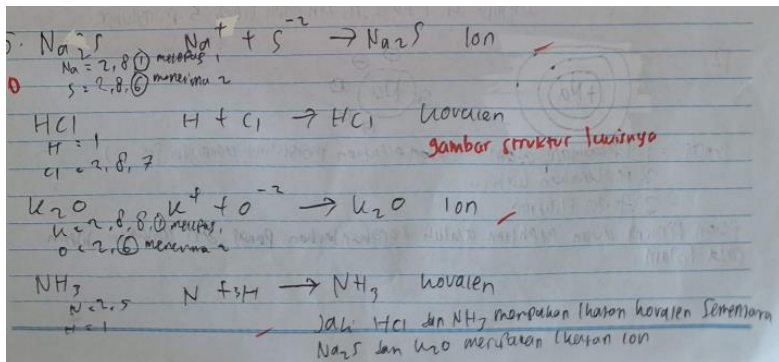 5. Na2S Na+ + S-2 → Na2S Ion
Na = 2, 8, 1 melepas 1
S = 2, 8, 6 menerima 2
HCl H + Cl → HCl kovalen
H = 1
Cl = 2, 8, 7
gambar struktur lewisnya
K2O K+ + O-2 → K2O Ion
K = 2, 8, 8, 1 melepas 1
O = 2, 6 menerima 2
NH3 N + 3H → NH3 kovalen
N = 2, 5
H = 1
Jadi HCl dan NH3 merupakan Ikatan kovalen Sementara
Na2S dan K2O merupakan Ikatan Ion